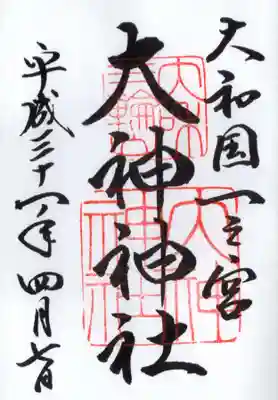 大和国一之宮
大神神社
平成三十一年四月七日